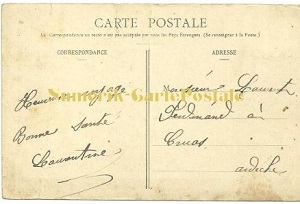 CARTE POSTALE
La Correspondance au recto n'est pas acceptée par tous les Pays Étrangers. (Se renseigner à la Poste.)
CORRESPONDANCE
ADRESSE
Sumerik-CartePostale
Heureux voyage
Bonne Santé
Laurentine
Monsieur Laurent
Ferdinand à
Cruas
ardèche